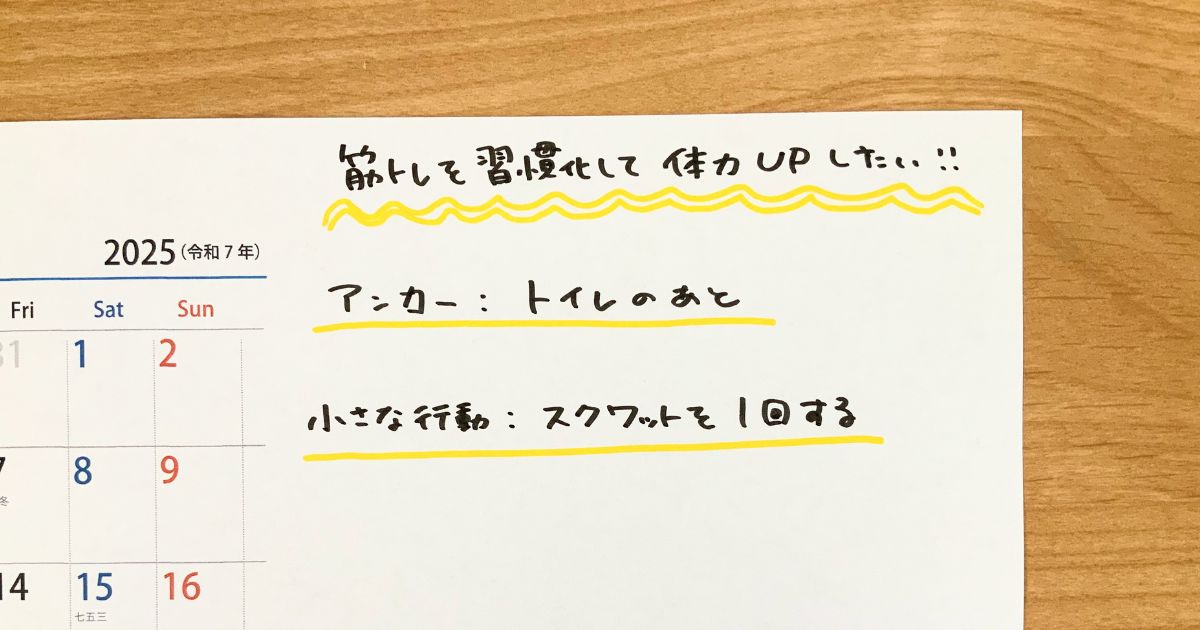 筋トレを習慣化して体力UPしたい!!
2025(令和7年)
アンカー:トイレのあと
Fri Sat Sun
31 1 2
小さな行動:スクワットを1回する
7 8 9
冬
14 15 16
七五三